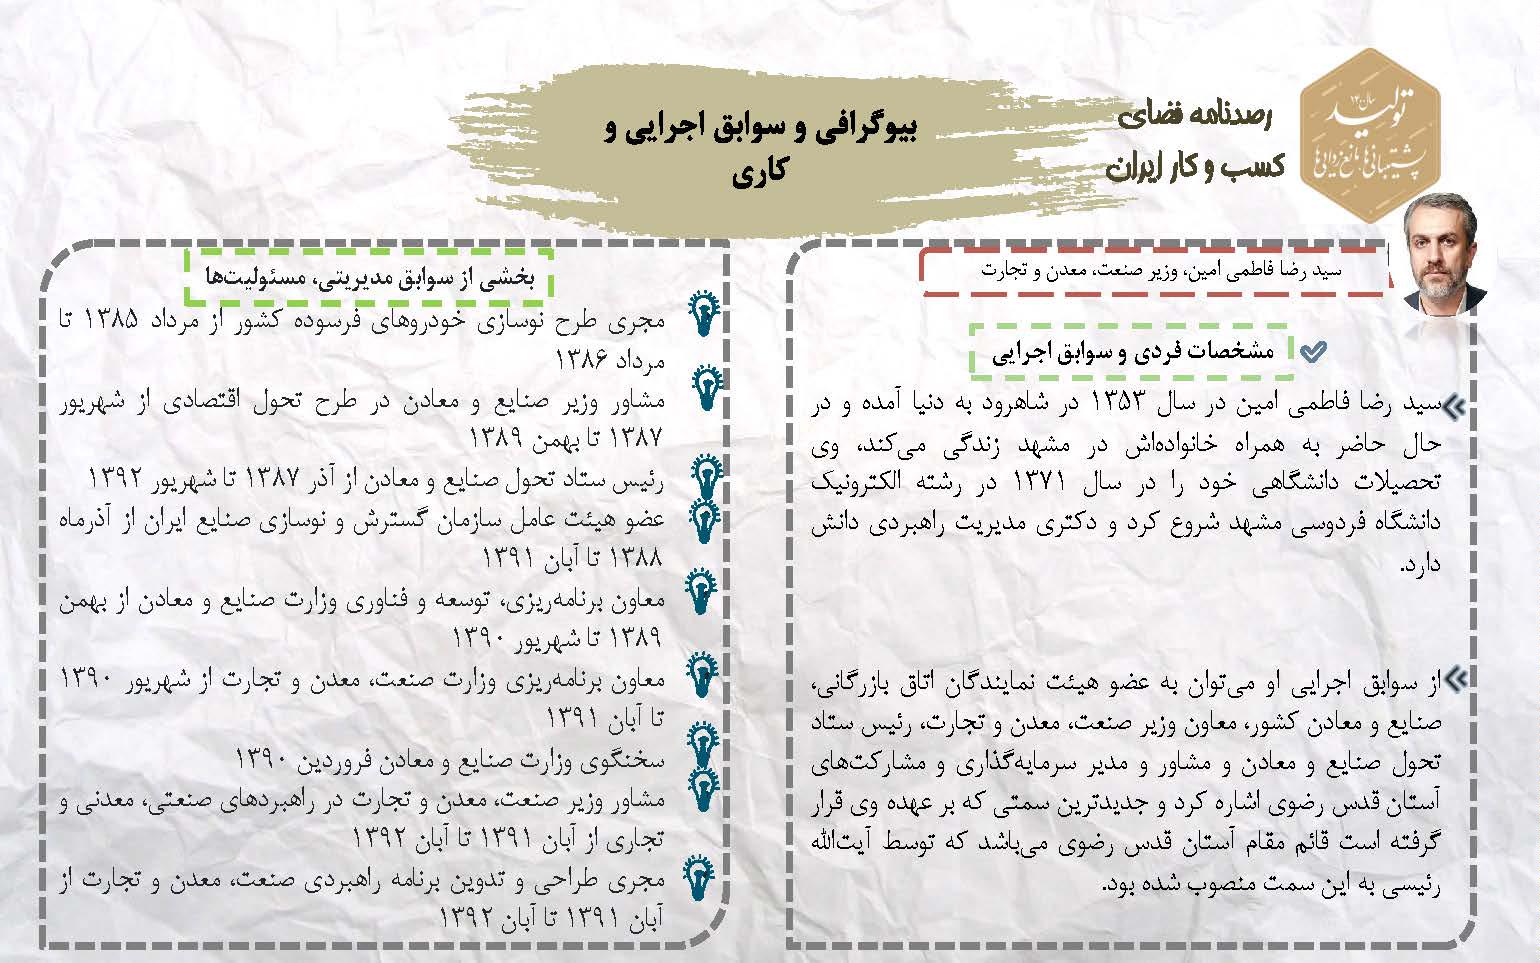 سال ۱۴
تولید
پشتیبانی‌ها، مانع‌زدایی‌ها
رصدنامه فضای
کسب و کار ایران
بیوگرافی و سوابق اجرایی و
کاری
سید رضا فاطمی امین، وزیر صنعت، معدن و تجارت
مشخصات فردی و سوابق اجرایی
سید رضا فاطمی امین در سال ۱۳۵۳ در شاهرود به دنیا آمده و در
حال حاضر به همراه خانواده‌اش در مشهد زندگی می‌کند، وی
تحصیلات دانشگاهی خود را در سال ۱۳۷۱ در رشته الکترونیک
دانشگاه فردوسی مشهد شروع کرد و دکتری مدیریت راهبردی دانش
دارد.
از سوابق اجرایی او می‌توان به عضو هیئت نمایندگان اتاق بازرگانی،
صنایع و معادن کشور، معاون وزیر صنعت، معدن و تجارت، رئیس ستاد
تحول صنایع و معادن و مشاور و مدیر سرمایه‌گذاری و مشارکت‌های
آستان قدس رضوی اشاره کرد و جدیدترین سمتی که بر عهده وی قرار
گرفته است قائم مقام آستان قدس رضوی می‌باشد که توسط آیت‌الله
رئیسی به این سمت منصوب شده بود.
بخشی از سوابق مدیریتی، مسئولیت‌ها
مجری طرح نوسازی خودروهای فرسوده کشور از مرداد ۱۳۸۵ تا
مرداد ۱۳۸۶
مشاور وزیر صنایع و معادن در طرح تحول اقتصادی از شهریور
۱۳۸۷ تا بهمن ۱۳۸۹
رئیس ستاد تحول صنایع و معادن از آذر ۱۳۸۷ تا شهریور ۱۳۹۲
عضو هیئت عامل سازمان گسترش و نوسازی صنایع ایران از آذرماه
۱۳۸۸ تا آبان ۱۳۹۱
معاون برنامه‌ریزی، توسعه و فناوری وزارت صنایع و معادن از بهمن
۱۳۸۹ تا شهریور ۱۳۹۰
معاون برنامه‌ریزی وزارت صنعت، معدن و تجارت از شهریور ۱۳۹۰
تا آبان ۱۳۹۱
سخنگوی وزارت صنایع و معادن فروردین ۱۳۹۰
مشاور وزیر صنعت، معدن و تجارت در راهبردهای صنعتی، معدنی و
تجاری از آبان ۱۳۹۱ تا آبان ۱۳۹۲
مجری طراحی و تدوین برنامه راهبردی صنعت، معدن و تجارت از
آبان ۱۳۹۱ تا آبان ۱۳۹۲